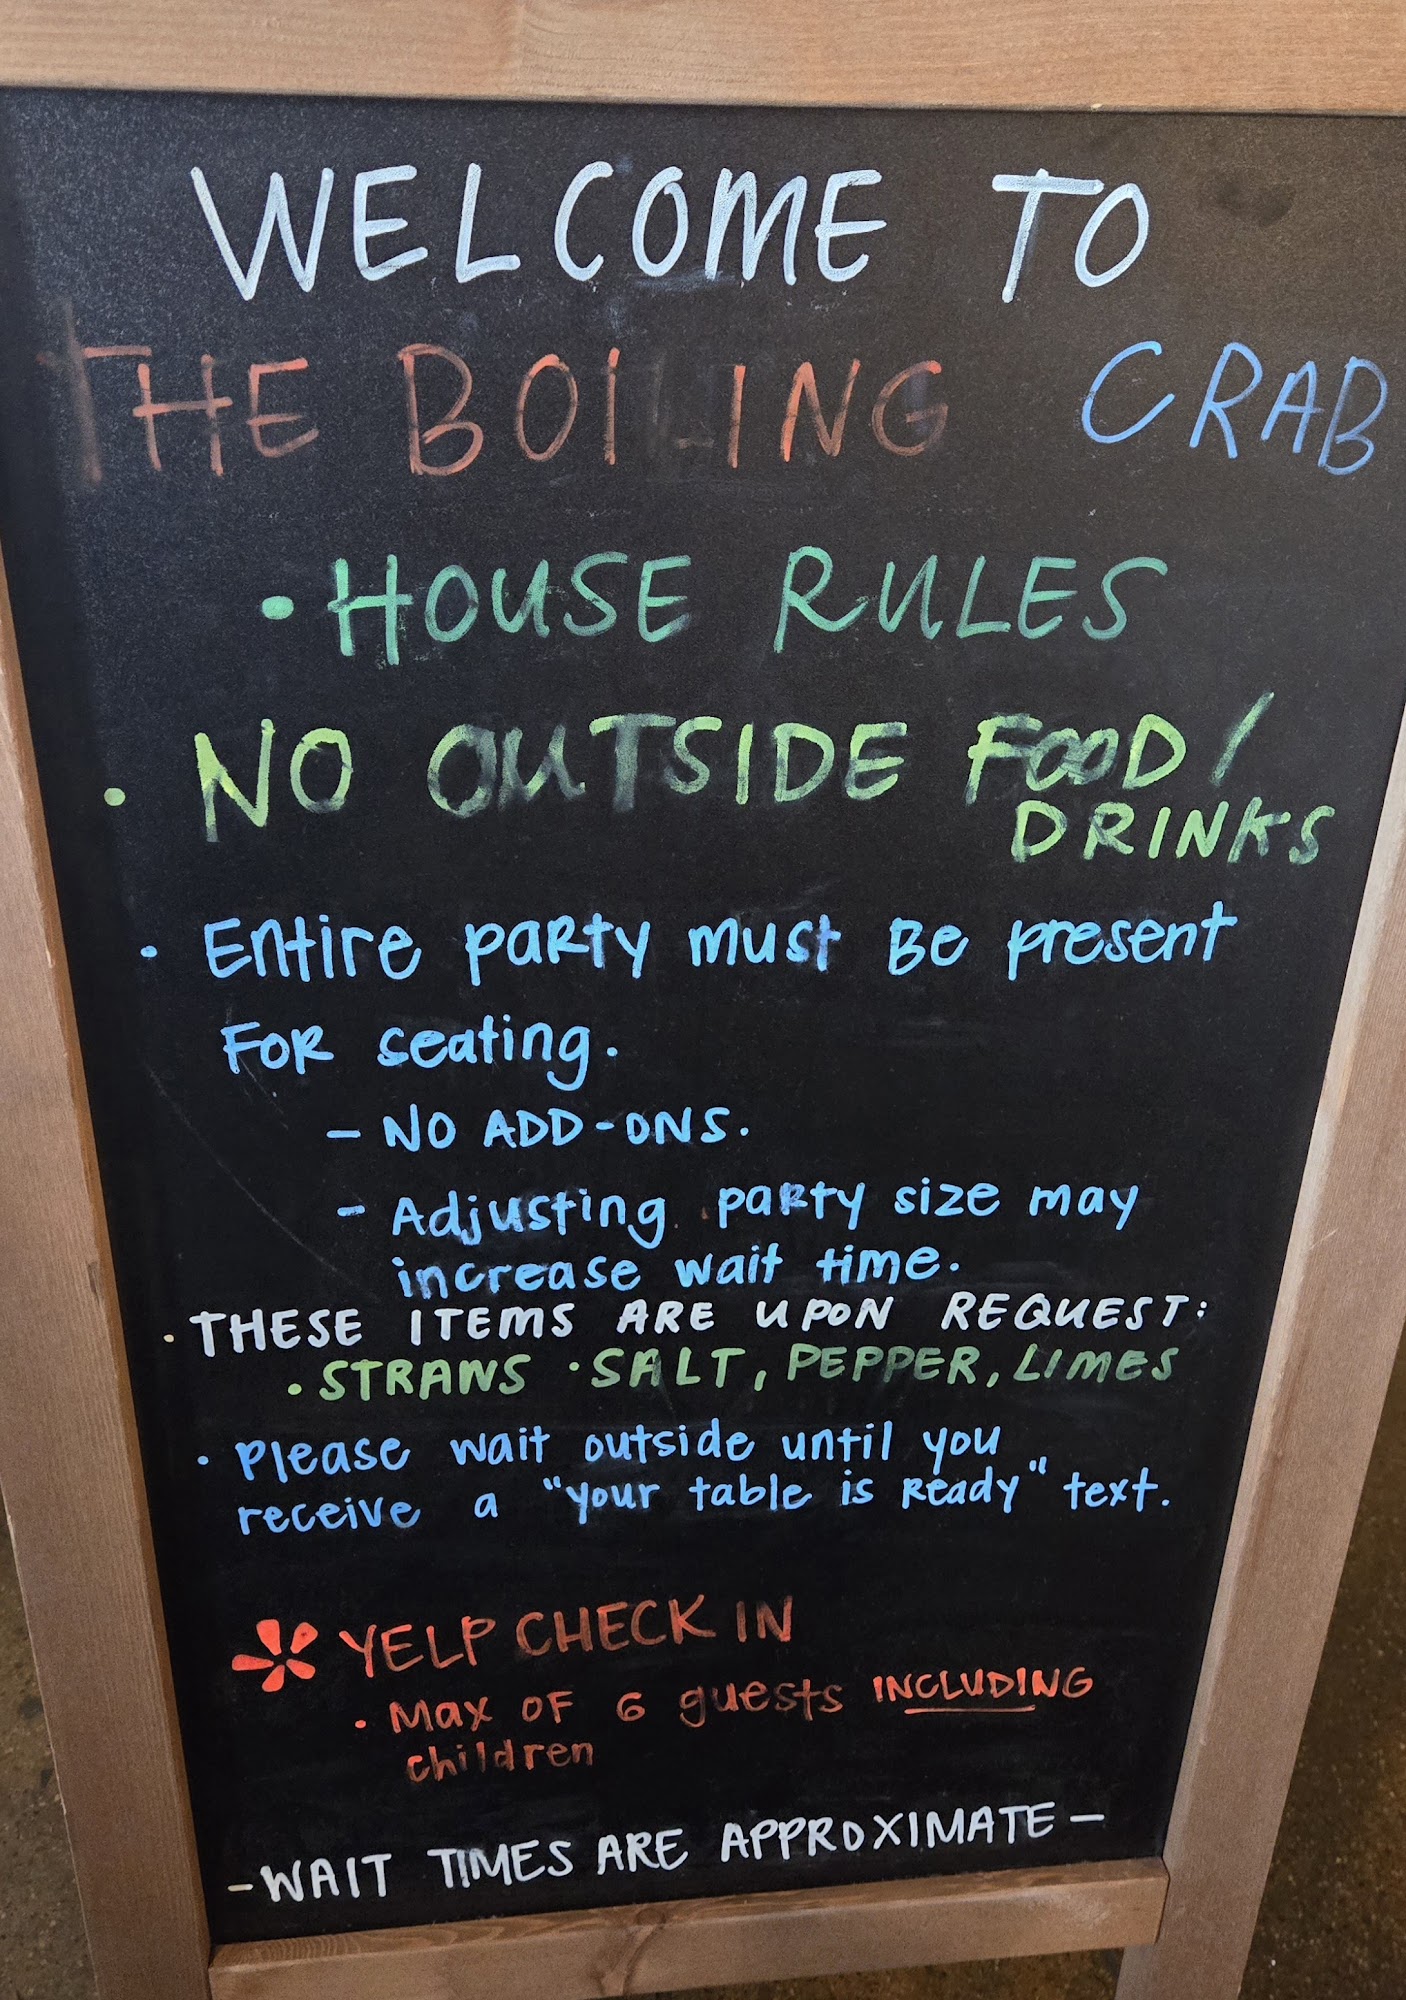 WELCOME TO
THE BOILING CRAB
• HOUSE RULES
• NO OUTSIDE FOOD /
DRINKS
• Entire party must Be present
FOR seating.
- NO ADD-ONS.
- Adjusting party size may
increase wait time.
• THESE ITEMS ARE UPON REQUEST:
• STRAWS • SALT, PEPPER, LIMES
• Please wait outside until you
receive a "your table is Ready" text.
YELP CHECK IN
• Max OF 6 guests INCLUDING
children
- WAIT TIMES ARE APPROXIMATE -